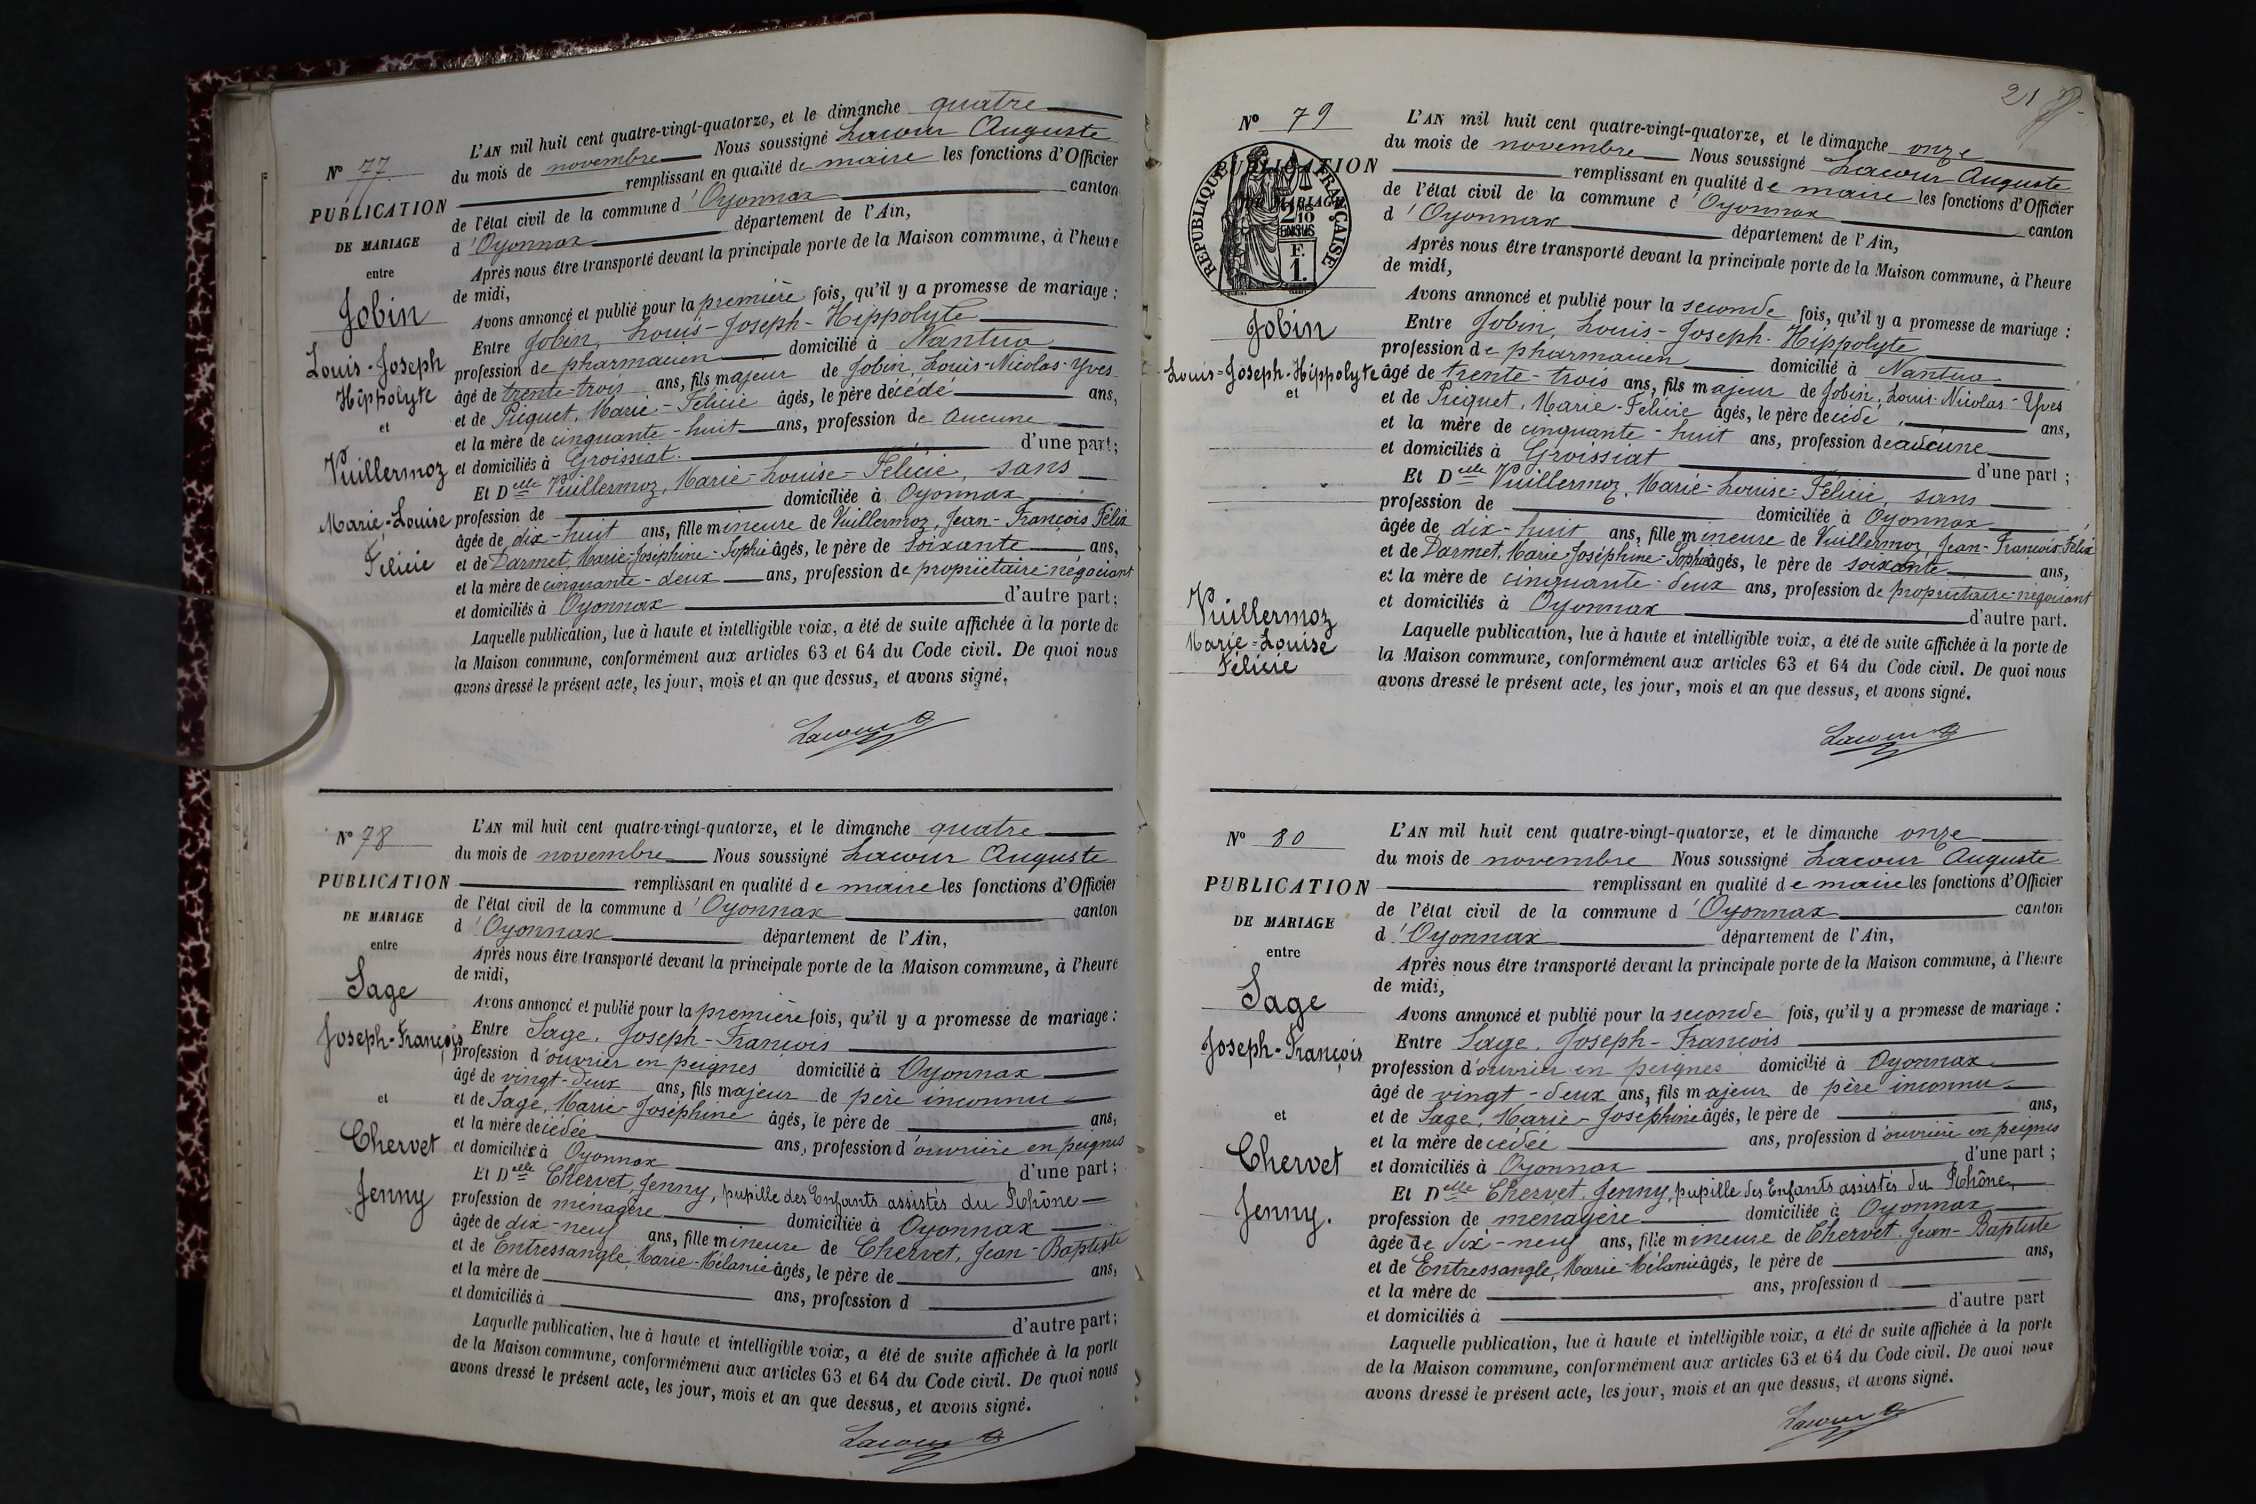 N° 77
PUBLICATION
DE MARIAGE
entre
Jobin
Louis-Joseph
Hippolyte
et
Vuillermoz
Marie-Louise
Félicie
L'AN mil huit cent quatre-vingt-quatorze, et le dimanche quatre
du mois de novembre Nous soussigné Lacour Auguste
remplissant en qualité de maire les fonctions d'Officier
de l'état civil de la commune d'Oyonnax canton
d'Oyonnax département de l'Ain,
Après nous être transporté devant la principale porte de la Maison commune, à l'heure
de midi,
Avons annoncé et publié pour la première fois, qu'il y a promesse de mariage :
Entre Jobin, Louis-Joseph-Hippolyte
profession de pharmacien domicilié à Nantua
âgé de trente-trois ans, fils majeur de Jobin, Louis-Nicolas-Yves
et de Picquet, Marie-Félicie âgés, le père décédé ans,
et la mère de cinquante-huit ans, profession de aucune
et domiciliés à Groissiat. d'une part;
Et Delle Vuillermoz, Marie-Louise-Félicie, sans
profession de domiciliée à Oyonnax
âgée de dix-huit ans, fille mineure de Vuillermoz, Jean-François Félix
et de Darmet, Marie-Joséphine-Sophie âgés, le père de soixante ans,
et la mère de cinquante-deux ans, profession de propriétaire-négociant
et domiciliés à Oyonnax d'autre part;
Laquelle publication, lue à haute et intelligible voix, a été de suite affichée à la porte de
la Maison commune, conformément aux articles 63 et 64 du Code civil. De quoi nous
avons dressé le présent acte, les jour, mois et an que dessus, et avons signé.
Lacour A
N° 78
PUBLICATION
DE MARIAGE
entre
Sage
Joseph-François
et
Chervet
Jenny
L'AN mil huit cent quatre-vingt-quatorze, et le dimanche quatre
du mois de novembre Nous soussigné Lacour Auguste
remplissant en qualité de maire les fonctions d'Officier
de l'état civil de la commune d'Oyonnax canton
d'Oyonnax département de l'Ain,
Après nous être transporté devant la principale porte de la Maison commune, à l'heure
de midi,
Avons annoncé et publié pour la première fois, qu'il y a promesse de mariage :
Entre Sage, Joseph-François
profession d'ouvrier en peignes domicilié à Oyonnax
âgé de vingt-deux ans, fils majeur de père inconnu
et de Sage, Marie-Joséphine âgés, le père de ans,
et la mère décédée ans, profession d'ouvrière en peignes
et domiciliés à Oyonnax d'une part;
Et Delle Chervet, Jenny, pupille des Enfants assistés du Rhône
profession de ménagère domiciliée à Oyonnax
âgée de dix-neuf ans, fille mineure de Chervet, Jean-Baptiste
et de Entressangle, Marie-Mélanie âgés, le père de ans,
et la mère de ans, profession d
et domiciliés à d'autre part;
Laquelle publication, lue à haute et intelligible voix, a été de suite affichée à la porte
de la Maison commune, conformément aux articles 63 et 64 du Code civil. De quoi nous
avons dressé le présent acte, les jour, mois et an que dessus, et avons signé.
Lacour A
21
N° 79
PUBLICATION
DE MARIAGE
RÉPUBLIQUE FRANÇAISE
2/10 EN SUS
F.
1.
Jobin
Louis-Joseph-Hippolyte
et
Vuillermoz
Marie-Louise
Félicie
L'AN mil huit cent quatre-vingt-quatorze, et le dimanche onze
du mois de novembre Nous soussigné Lacour Auguste
remplissant en qualité de maire les fonctions d'Officier
de l'état civil de la commune d'Oyonnax canton
d'Oyonnax département de l'Ain,
Après nous être transporté devant la principale porte de la Maison commune, à l'heure
de midi,
Avons annoncé et publié pour la seconde fois, qu'il y a promesse de mariage :
Entre Jobin, Louis-Joseph-Hippolyte
profession de pharmacien domicilié à Nantua
âgé de trente-trois ans, fils majeur de Jobin, Louis-Nicolas-Yves
et de Picquet, Marie-Félicie âgés, le père décédé, ans,
et la mère de cinquante-huit ans, profession de aucune
et domiciliés à Groissiat d'une part;
Et Delle Vuillermoz, Marie-Louise-Félicie, sans
profession de domiciliée à Oyonnax
âgée de dix-huit ans, fille mineure de Vuillermoz, Jean-François-Félix
et de Darmet, Marie-Joséphine-Sophie âgés, le père de soixante ans,
et la mère de cinquante-deux ans, profession de propriétaire-négociant
et domiciliés à Oyonnax d'autre part.
Laquelle publication, lue à haute et intelligible voix, a été de suite affichée à la porte de
la Maison commune, conformément aux articles 63 et 64 du Code civil. De quoi nous
avons dressé le présent acte, les jour, mois et an que dessus, et avons signé.
Lacour A
N° 80
PUBLICATION
DE MARIAGE
entre
Sage
Joseph-François
et
Chervet
Jenny.
L'AN mil huit cent quatre-vingt-quatorze, et le dimanche onze
du mois de novembre Nous soussigné Lacour Auguste
remplissant en qualité de maire les fonctions d'Officier
de l'état civil de la commune d'Oyonnax canton
d'Oyonnax département de l'Ain,
Après nous être transporté devant la principale porte de la Maison commune, à l'heure
de midi,
Avons annoncé et publié pour la seconde fois, qu'il y a promesse de mariage :
Entre Sage, Joseph-François
profession d'ouvrier en peignes domicilié à Oyonnax
âgé de vingt-deux ans, fils majeur de père inconnu
et de Sage, Marie-Joséphine âgés, le père de ans,
et la mère décédée ans, profession d'ouvrière en peignes
et domiciliés à Oyonnax d'une part;
Et Delle Chervet, Jenny, pupille des Enfants assistés du Rhône,
profession de ménagère domiciliée à Oyonnax
âgée de dix-neuf ans, fille mineure de Chervet, Jean-Baptiste
et de Entressangle, Marie-Mélanie âgés, le père de ans,
et la mère de ans, profession d
et domiciliés à d'autre part
Laquelle publication, lue à haute et intelligible voix, a été de suite affichée à la porte
de la Maison commune, conformément aux articles 63 et 64 du Code civil. De quoi nous
avons dressé le présent acte, les jour, mois et an que dessus, et avons signé.
Lacour A